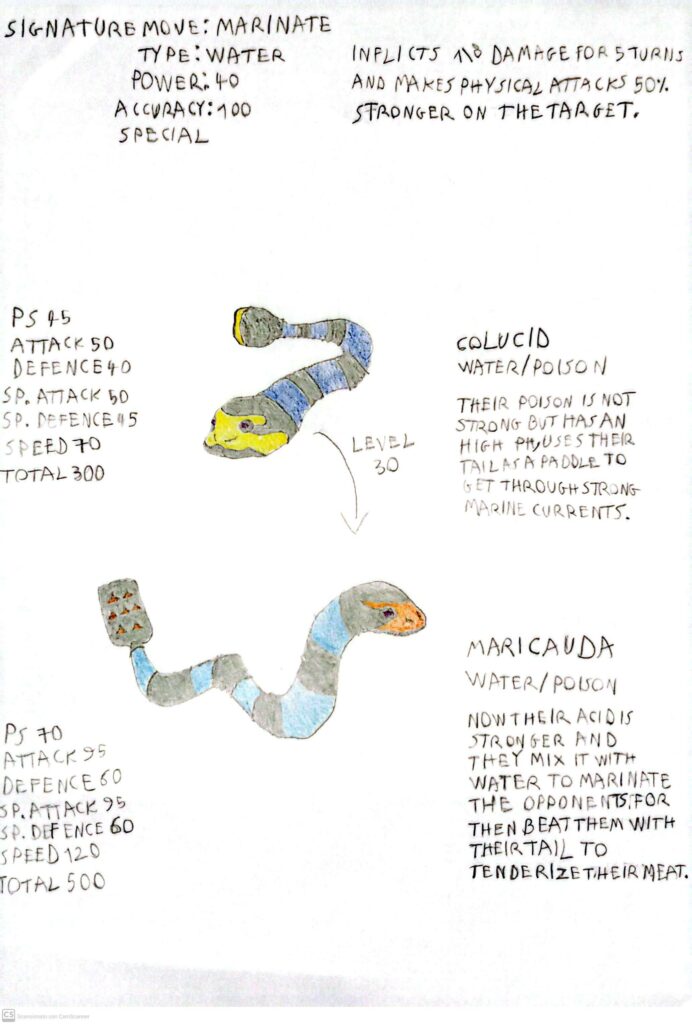 SIGNATURE MOVE: MARINATE
TYPE: WATER
POWER: 40
ACCURACY: 100
SPECIAL
INFLICTS 1\8 DAMAGE FOR 5 TURNS
AND MAKES PHYSICAL ATTACKS 50%
STRONGER ON THE TARGET.
PS 45
ATTACK 50
DEFENCE 40
SP. ATTACK 50
SP. DEFENCE 45
SPEED 70
TOTAL 300
LEVEL
30
COLUCID
WATER/POISON
THEIR POISON IS NOT
STRONG BUT HAS AN
HIGH PH, USES THEIR
TAIL AS A PADDLE TO
GET THROUGH STRONG
MARINE CURRENTS.
PS 70
ATTACK 95
DEFENCE 60
SP. ATTACK 95
SP. DEFENCE 60
SPEED 120
TOTAL 500
MARICAUDA
WATER/POISON
NOW THEIR ACID IS
STRONGER AND
THEY MIX IT WITH
WATER TO MARINATE
THE OPPONENTS, FOR
THEN BEAT THEM WITH
THEIR TAIL TO
TENDERIZE THEIR MEAT.
CS Scansionato con CamScanner